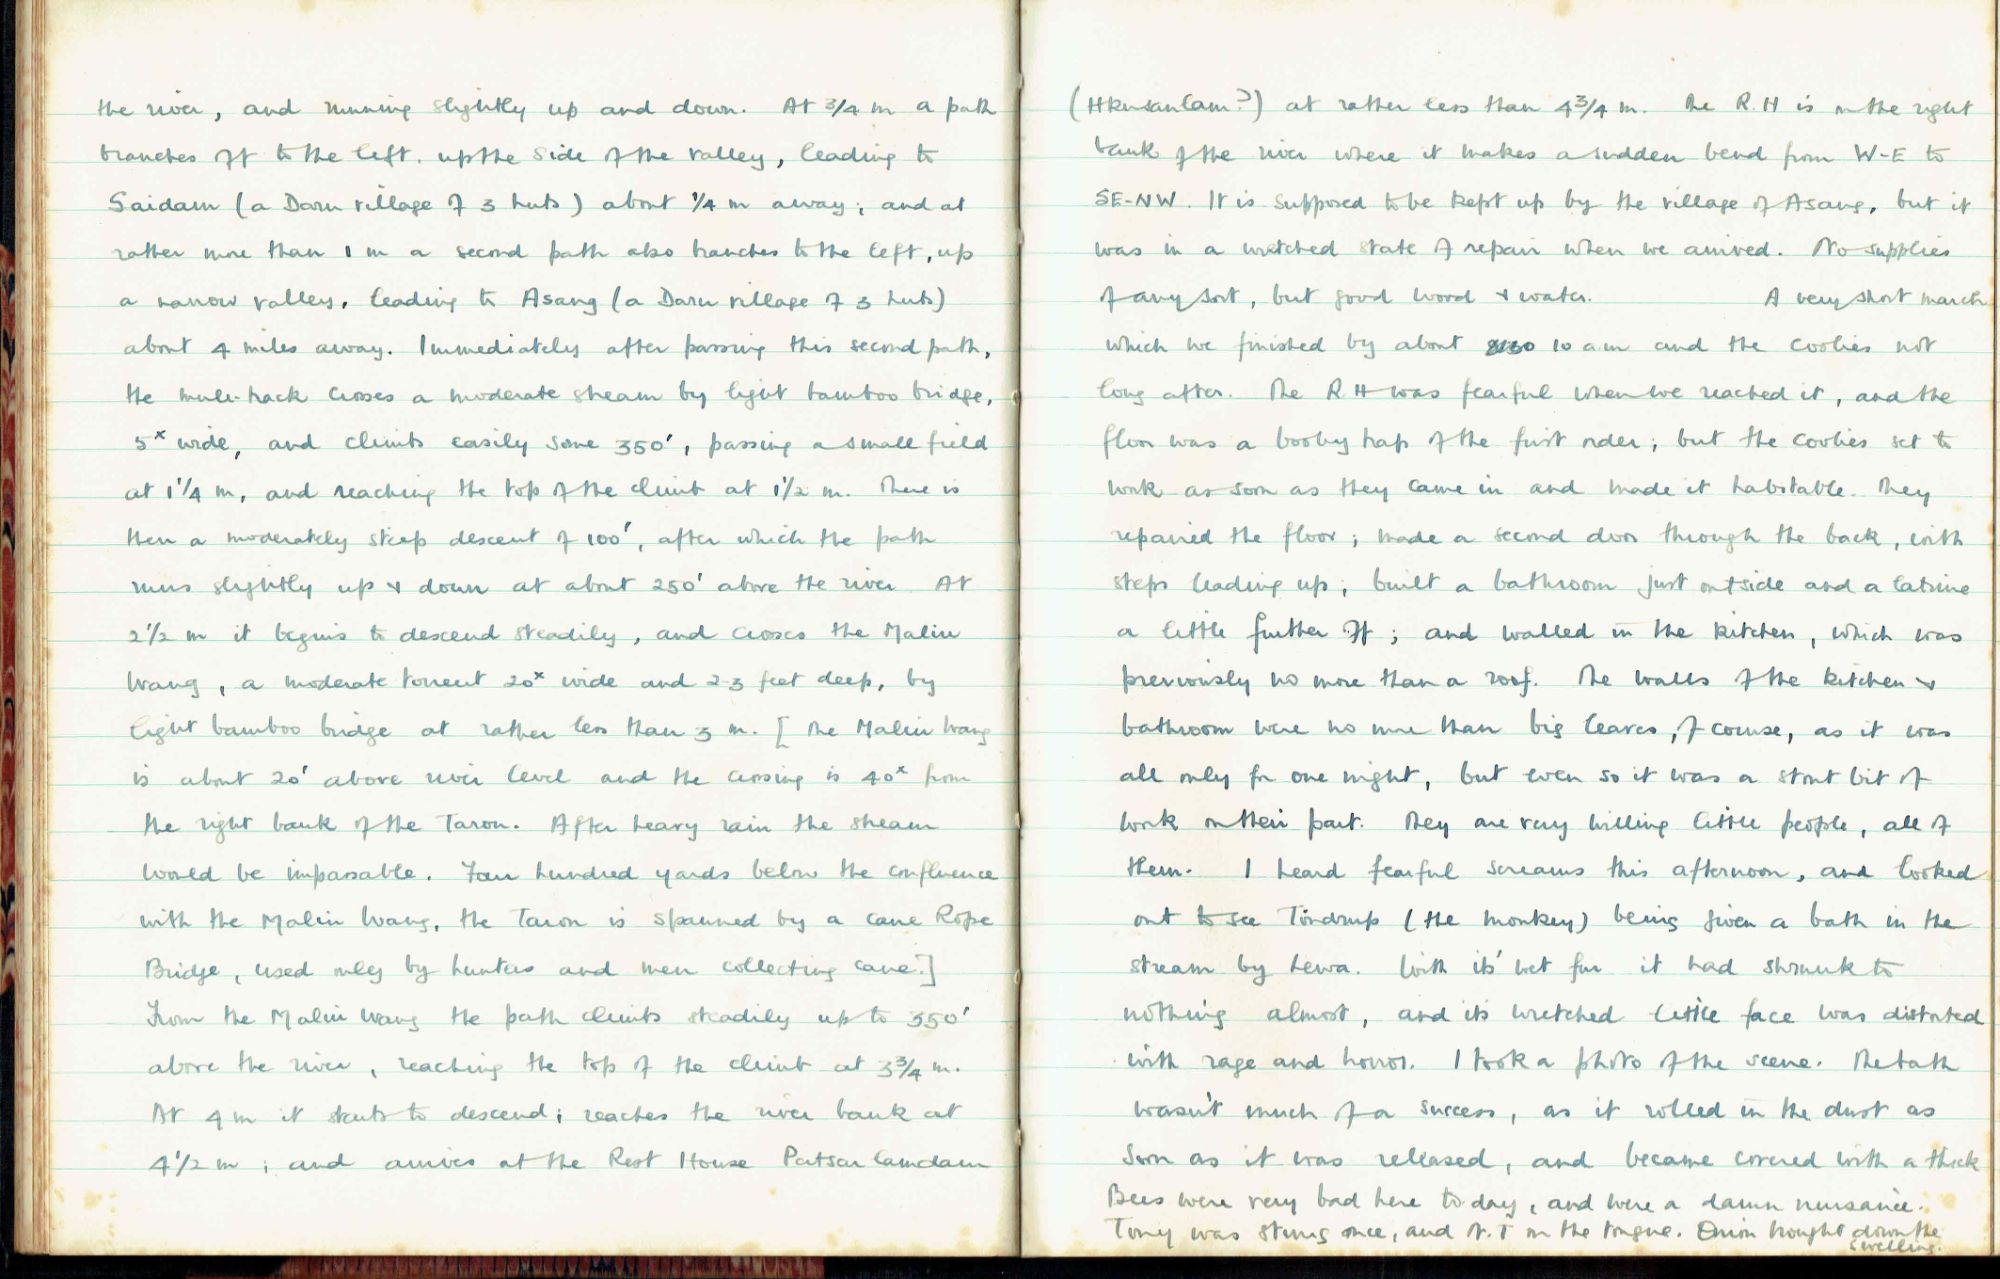 the river, and running slightly up and down. At 3/4 m a path
branches off to the left. up the side of the valley, leading to
Saidam (a Daru village of 3 huts) about 1/4 m away; and at
rather more than 1 m a second path also branches to the left, up
a narrow valley, leading to Asang (a Daru village of 3 huts)
about 4 miles away. Immediately after passing this second path,
the mule-track crosses a moderate stream by light bamboo bridge,
5ˣ wide, and climbs easily some 350', passing a small field
at 1 1/4 m, and reaching the top of the climb at 1 1/2 m. There is
then a moderately steep descent of 100', after which the path
runs slightly up & down at about 250' above the river. At
2 1/2 m it begins to descend steadily, and crosses the Malin
Wang, a moderate torrent 20ˣ wide and 2-3 feet deep, by
light bamboo bridge at rather less than 3 m. [The Malin Wang
is about 20' above river level and the crossing is 40ˣ from
the right bank of the Taron. After heavy rain the stream
would be impassable. Four hundred yards below the confluence
with the Malin Wang, the Taron is spanned by a cane Rope
Bridge, used only by hunters and men collecting cane.]
From the Malin Wang the path climbs steadily up to 350'
above the river, reaching the top of the climb at 3 3/4 m.
At 4 m it starts to descend; reaches the river bank at
4 1/2 m; and arrives at the Rest House Patsarlamdam
(Hkusanlam?) at rather less than 4 3/4 m. The R.H is on the right
bank of the river where it makes a sudden bend from W-E to
SE-NW. It is supposed to be kept up by the village of Asang, but it
was in a wretched state of repair when we arrived. No supplies
of any sort, but good wood & water. A very short march
which we finished by about 10 am and the coolies not
long after. The R.H was fearful when we reached it, and the
floor was a booby trap of the first order; but the coolies set to
work as soon as they came in and made it habitable. They
repaired the floor; made a second door through the back, with
steps leading up; built a bathroom just outside and a latrine
a little further off; and walled in the kitchen, which was
previously no more than a roof. The walls of the kitchen &
bathroom were no more than big leaves, of course, as it was
all only for one night, but even so it was a stout bit of
work on their part. They are very willing little people, all of
them. I heard fearful screams this afternoon, and looked
out to see Töndrup (the monkey) being given a bath in the
stream by Lewa. With its' wet fur it had shrunk to
nothing almost, and its wretched little face was distorted
with rage and horror. I took a photo of the scene. The bath
wasn't much of a success, as it rolled in the dust as
soon as it was released, and became covered with a thick
Bees were very bad here to-day, and were a damn nuisance.
Tony was stung once, and N.T on the tongue. Onion brought down the
swelling.